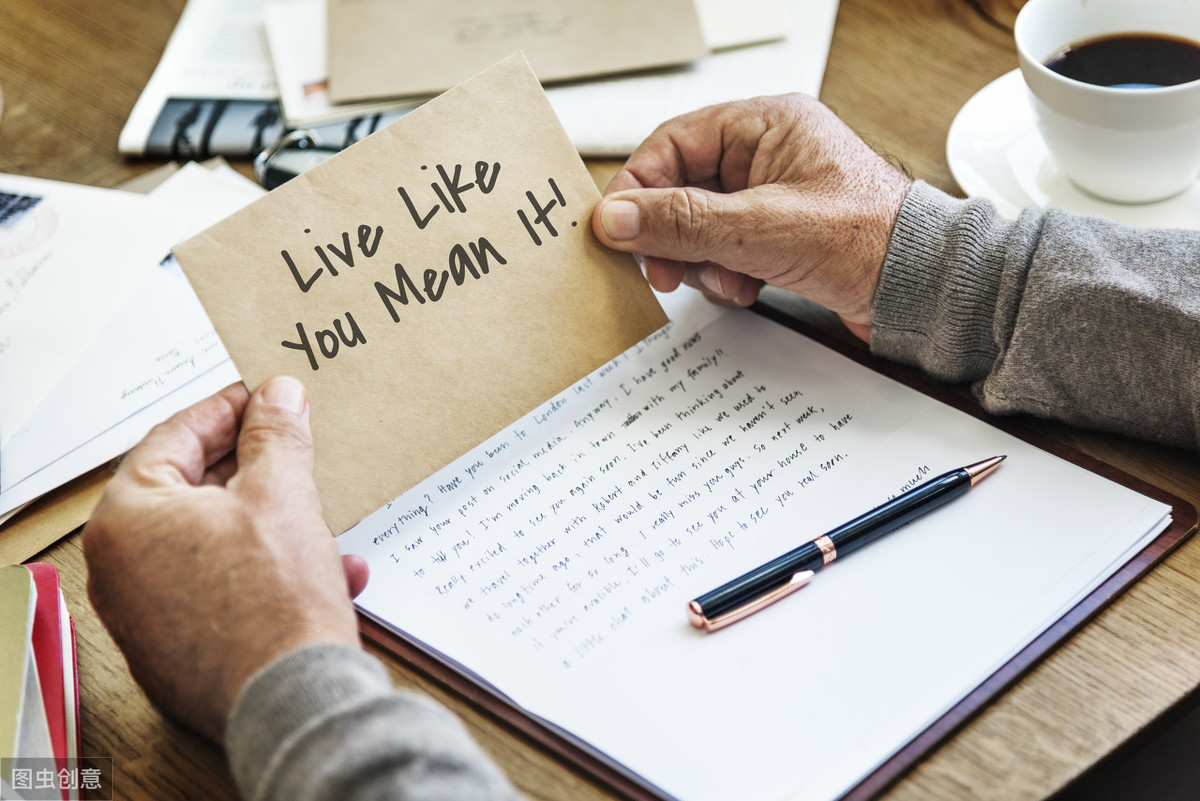 Live Like
You Mean It!
everything? Have you been to London last week? I though
I saw your post on social media. Anyway, I have good news
to you! I'm moving back in town with my family!!
Really excited to see you again soon. I've been thinking about
we travel together with Robert and Tiffany like we used to
do long time ago, that would be fun since we haven't seen
each other for so long. I really miss you guys. So next week,
if you're avalible, I'll go to see you at your house to have
a little chat about this. Hope to see you real soon.
so much
图虫创意